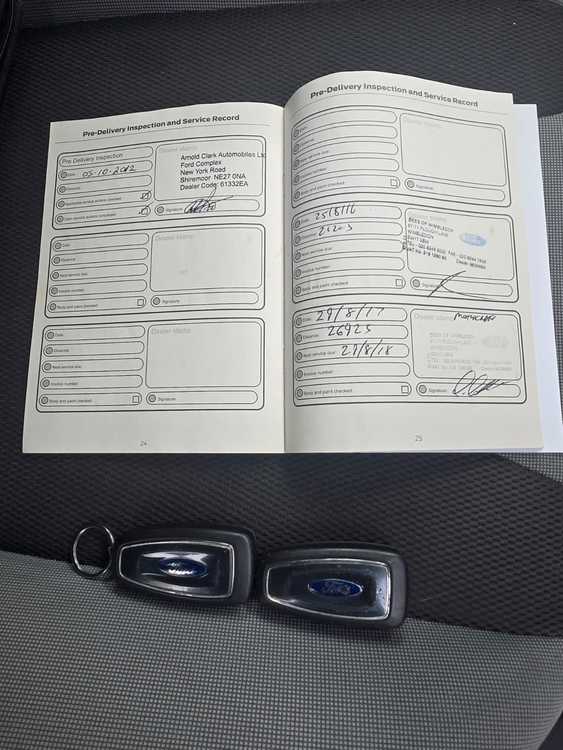 Pre-Delivery Inspection and Service Record
Pre Delivery Inspection
Date: 05-10-2012
Distance:
Dealer stamp
Arnold Clark Automobiles Ltd
Ford Complex
New York Road
Shiremoor NE27 0NA
Dealer Code: 61332EA
Signature:
Date:
Distance:
Next service due:
Invoice number:
Body and paint checked:
Dealer stamp
Signature:
Date:
Distance:
Next service due:
Invoice number:
Body and paint checked:
Dealer stamp
Signature:
24
Pre-Delivery Inspection and Service Record
Date:
Distance:
Next service due:
Invoice number:
Body and paint checked:
Dealer stamp
Signature:
Date: 25/6/16
Distance:
Next service due:
Invoice number:
Body and paint checked:
Dealer stamp
BEES OF WIMBLEDON
WIMBLEDON
Signature:
Date: 29/8/17
Distance: 26925
Next service due: 29/8/18
Invoice number:
Body and paint checked:
Dealer stamp
BEES OF WIMBLEDON
Signature:
25
Ford
Ford